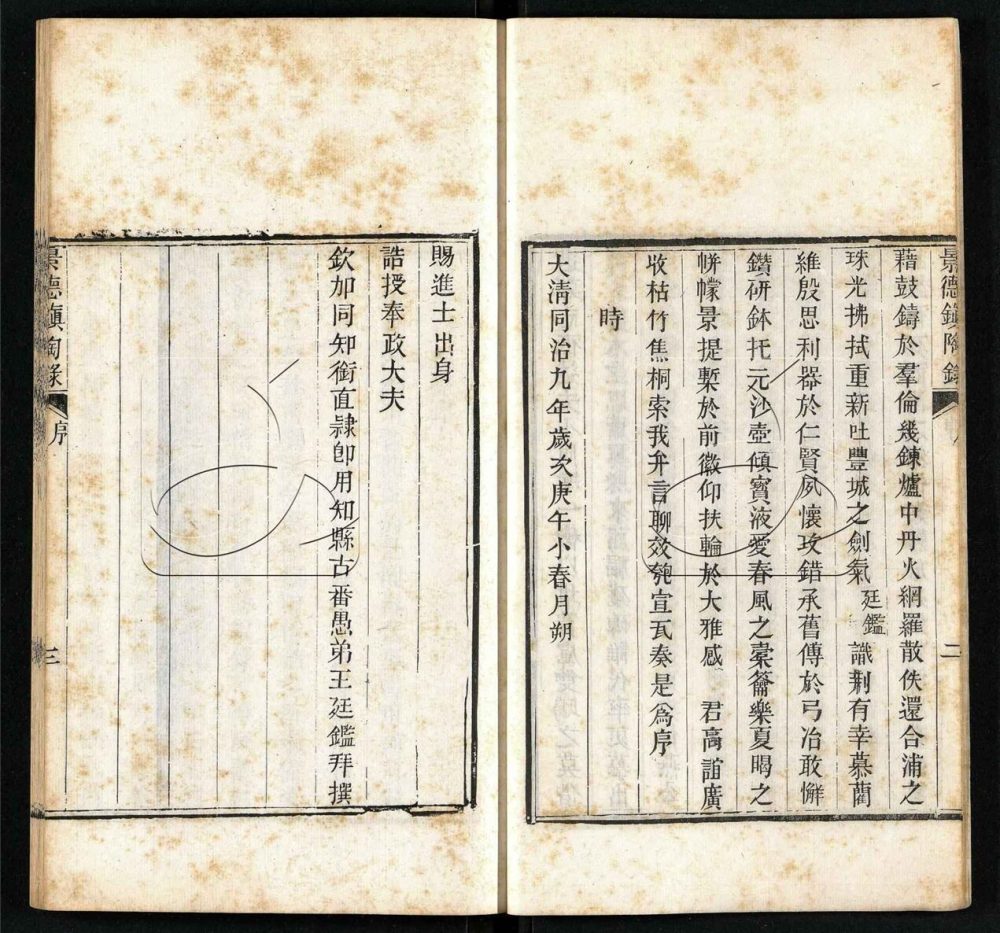 景德鎮陶錄 二
藉鼓鑄於羣倫幾鍊爐中丹火網羅散佚還合浦之
珠光拂拭重新吐豐城之劍氣廷鑑識荆有幸慕藺
維殷思利器於仁賢夙懷攻錯承舊傳於弓冶敢懈
鑽研鉢托元沙壺傾寶液愛春風之橐籥樂夏暍之
帡幪景提槧於前徽仰扶輪於大雅感 君高誼廣
收枯竹焦桐索我弁言聊效匏宣瓦奏是為序
時
大淸同治九年歲次庚午小春月朔
賜進士出身
誥授奉政大夫
欽加同知銜直隷卽用知縣古番愚弟王廷鑑拜撰
景德鎮陶錄 序 三